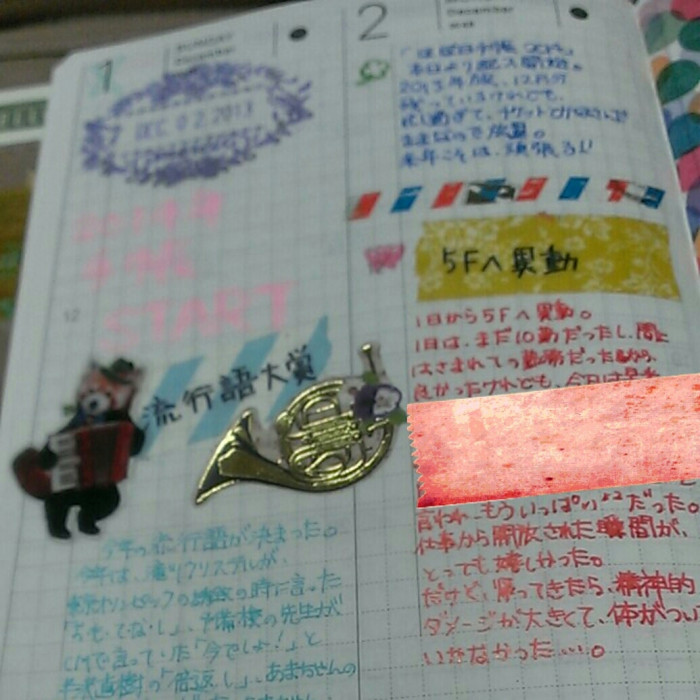 1
SUNDAY
December
DEC 02 2013
2014年
手帳
START
12
流行語大賞
今年の流行語が決まった。
今年は、滝川クリステルが、
東京オリンピックの
時に言った
「おもてなし」、予備校の先生が
CMで言っていた「今でしょ!」と
「倍返し」、あまちゃんの
2
December
本日より記入開始。
2013年版、12月分
残っているけれども、
来年こそは、頑張る!!
5Fへ異動
1日から5Fへ異動。
1日は、まだ10勤だったし、間に
はさまれての勤務だったから、
良かったけれども、今日は
言われ、もういっぱいいっぱいだった。
仕事から開放された瞬間が、
とっても嬉しかった。
だけど、帰ってきたら、精神的
ダメージが大きくて、体がつい
いかなかった…。